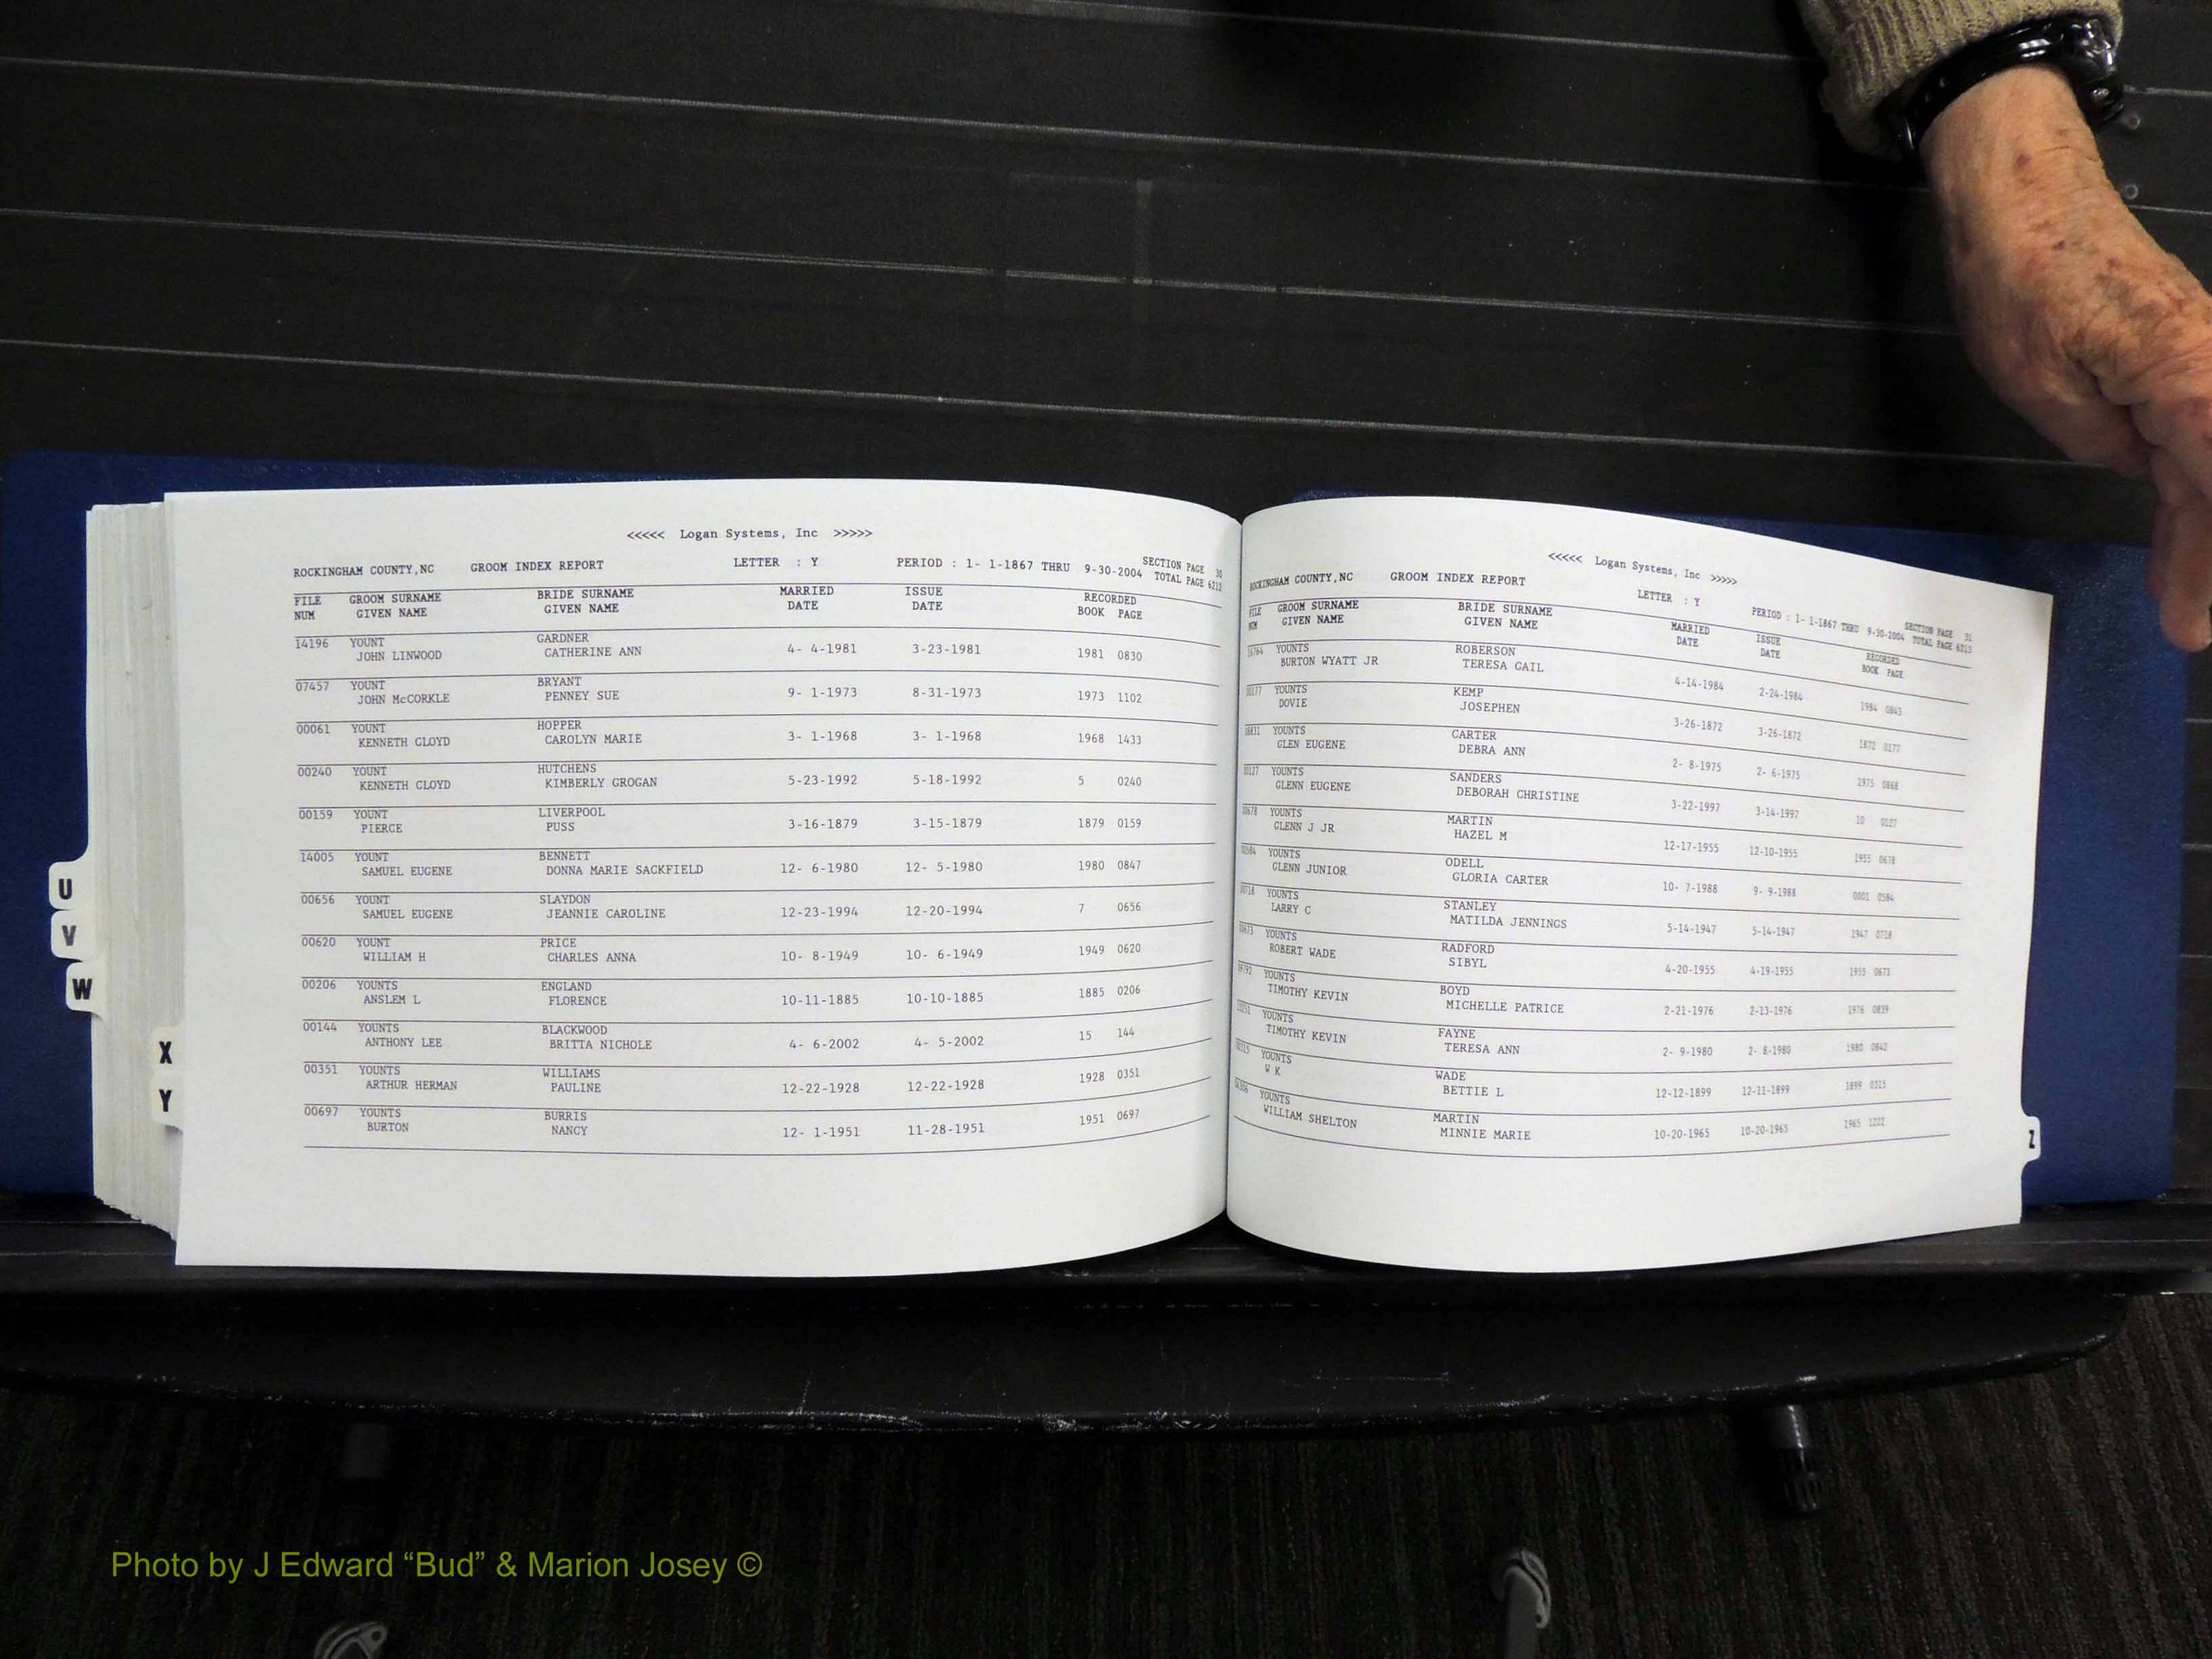 <<<<< Logan Systems, Inc >>>>>
ROCKINGHAM COUNTY,NC GROOM INDEX REPORT LETTER : Y PERIOD : 1- 1-1867 THRU 9-30-2004 SECTION PAGE 30
TOTAL PAGE 6212
FILE GROOM SURNAME BRIDE SURNAME MARRIED ISSUE RECORDED
NUM GIVEN NAME GIVEN NAME DATE DATE BOOK PAGE
14196 YOUNT GARDNER
JOHN LINWOOD CATHERINE ANN 4- 4-1981 3-23-1981 1981 0830
07457 YOUNT BRYANT
JOHN McCORKLE PENNEY SUE 9- 1-1973 8-31-1973 1973 1102
00061 YOUNT HOPPER
KENNETH CLOYD CAROLYN MARIE 3- 1-1968 3- 1-1968 1968 1433
00240 YOUNT HUTCHENS
KENNETH CLOYD KIMBERLY GROGAN 5-23-1992 5-18-1992 5 0240
00159 YOUNT LIVERPOOL
PIERCE PUSS 3-16-1879 3-15-1879 1879 0159
14005 YOUNT BENNETT
SAMUEL EUGENE DONNA MARIE SACKFIELD 12- 6-1980 12- 5-1980 1980 0847
00656 YOUNT SLAYDON
SAMUEL EUGENE JEANNIE CAROLINE 12-23-1994 12-20-1994 7 0656
00620 YOUNT PRICE
WILLIAM H CHARLES ANNA 10- 8-1949 10- 6-1949 1949 0620
00206 YOUNTS ENGLAND
ANSLEM L FLORENCE 10-11-1885 10-10-1885 1885 0206
00144 YOUNTS BLACKWOOD
ANTHONY LEE BRITTA NICHOLE 4- 6-2002 4- 5-2002 15 144
00351 YOUNTS WILLIAMS
ARTHUR HERMAN PAULINE 12-22-1928 12-22-1928 1928 0351
00697 YOUNTS BURRIS
BURTON NANCY 12- 1-1951 11-28-1951 1951 0697
U
V
W
X
Y
<<<<< Logan Systems, Inc >>>>>
ROCKINGHAM COUNTY,NC GROOM INDEX REPORT LETTER : Y PERIOD : 1- 1-1867 THRU 9-30-2004 SECTION PAGE 31
TOTAL PAGE 6213
FILE GROOM SURNAME BRIDE SURNAME MARRIED ISSUE RECORDED
NUM GIVEN NAME GIVEN NAME DATE DATE BOOK PAGE
YOUNTS ROBERSON
BURTON WYATT JR TERESA GAIL 4-14-1984 2-24-1984 1984 0843
00177 YOUNTS KEMP
DOVIE JOSEPHEN 3-26-1872 3-26-1872 1872 0177
YOUNTS CARTER
GLEN EUGENE DEBRA ANN 2- 8-1975 2- 6-1975 1975 0868
00127 YOUNTS SANDERS
GLENN EUGENE DEBORAH CHRISTINE 3-22-1997 3-14-1997 10 0127
00678 YOUNTS MARTIN
GLENN J JR HAZEL M 12-17-1955 12-10-1955 1955 0678
00584 YOUNTS ODELL
GLENN JUNIOR GLORIA CARTER 10- 7-1988 9- 9-1988 0001 0584
00718 YOUNTS STANLEY
LARRY C MATILDA JENNINGS 5-14-1947 5-14-1947 1947 0718
00673 YOUNTS RADFORD
ROBERT WADE SIBYL 4-20-1955 4-19-1955 1955 0673
YOUNTS BOYD
TIMOTHY KEVIN MICHELLE PATRICE 2-21-1976 2-13-1976 1976 0839
YOUNTS FAYNE
TIMOTHY KEVIN TERESA ANN 2- 9-1980 2- 8-1980 1980 0842
YOUNTS WADE
W K BETTIE L 12-12-1899 12-11-1899 1899 0315
YOUNTS MARTIN
WILLIAM SHELTON MINNIE MARIE 10-20-1965 10-20-1965 1965 1222
Z
Photo by J Edward “Bud” & Marion Josey ©